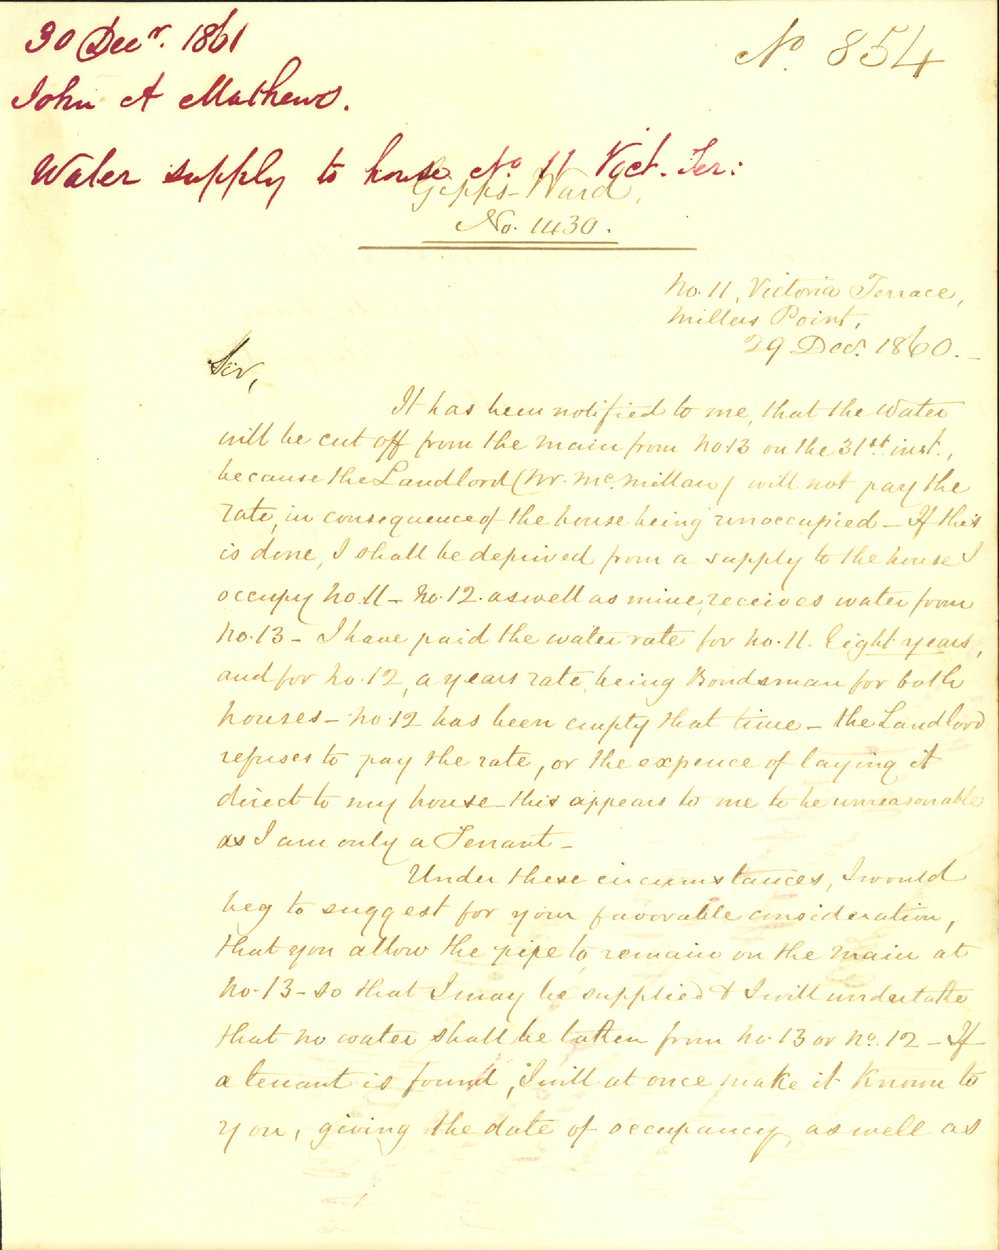 30 Decr. 1861
No. 854
John A Mathews.
Water supply to house No. 11 Vict. Ter:
Gipps Ward,
No. 1430.
No. 11, Victoria Terrace,
Millers Point,
29 Decr. 1860._
Sir,
It has been notified to me, that the Water
will be cut off from the main from No 13 on the 31st. inst.,
because the Landlord (Mr. McMillan) will not pay the
rate, in consequence of the house being unoccupied _ If this
is done, I shall be deprived from a supply to the house I
occupy No. 11 _ No. 12. as well as mine, receives water from
No. 13 _ I have paid the water rate for No. 11. Eight years,
and for No. 12, a years rate, being Bondsman for both
houses _ No 12 has been empty that time _ the Landlord
refuses to pay the rate, or the expence of laying it
direct to my house _ this appears to me to be unreasonable
as I am only a Tenant _
Under these circumstances, I would
beg to suggest for your favorable consideration,
that you allow the pipe to remain on the main at
No. 13 _ so that I may be supplied & I will undertake
that no water shall be taken from No. 13 or No. 12 _ If
a tenant is found, I will at once make it known to
you, giving the date of occupancy, as well as